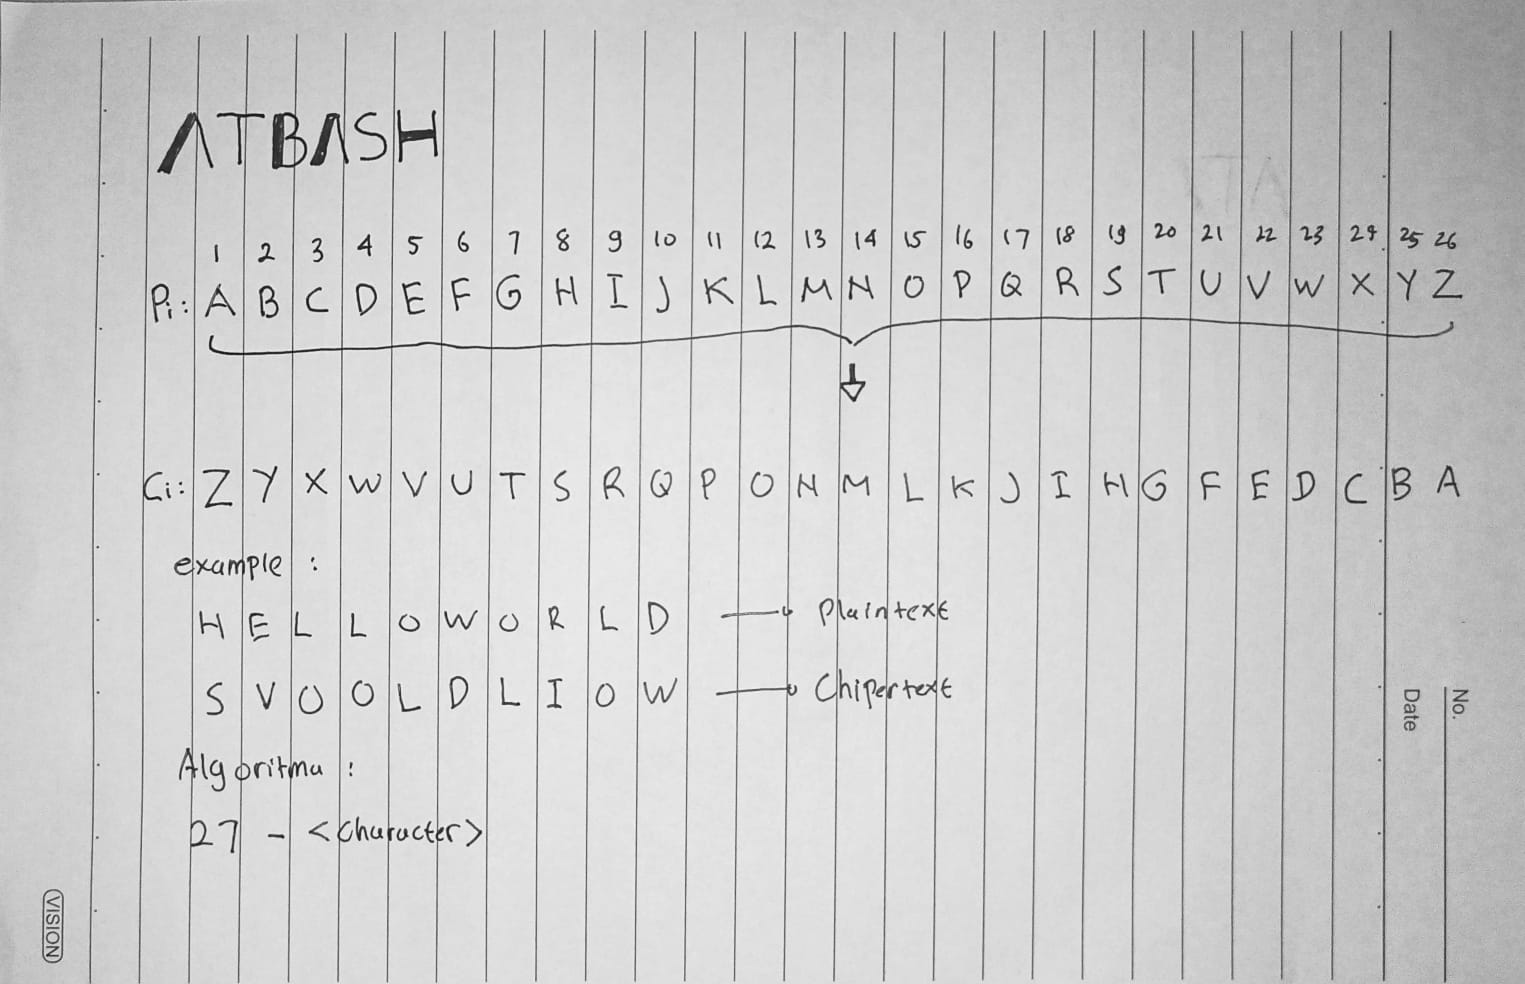 ATBASH
1 2 3 4 5 6 7 8 9 10 11 12 13 14 15 16 17 18 19 20 21 22 23 24 25 26
Pi: A B C D E F G H I J K L M N O P Q R S T U V W X Y Z
Ci: Z Y X W V U T S R Q P O N M L K J I H G F E D C B A
example :
H E L L O W O R L D → Plaintext
S V O O L D L I O W → Chipertext
Algoritma :
27 - <Character>
No.
Date
VISION